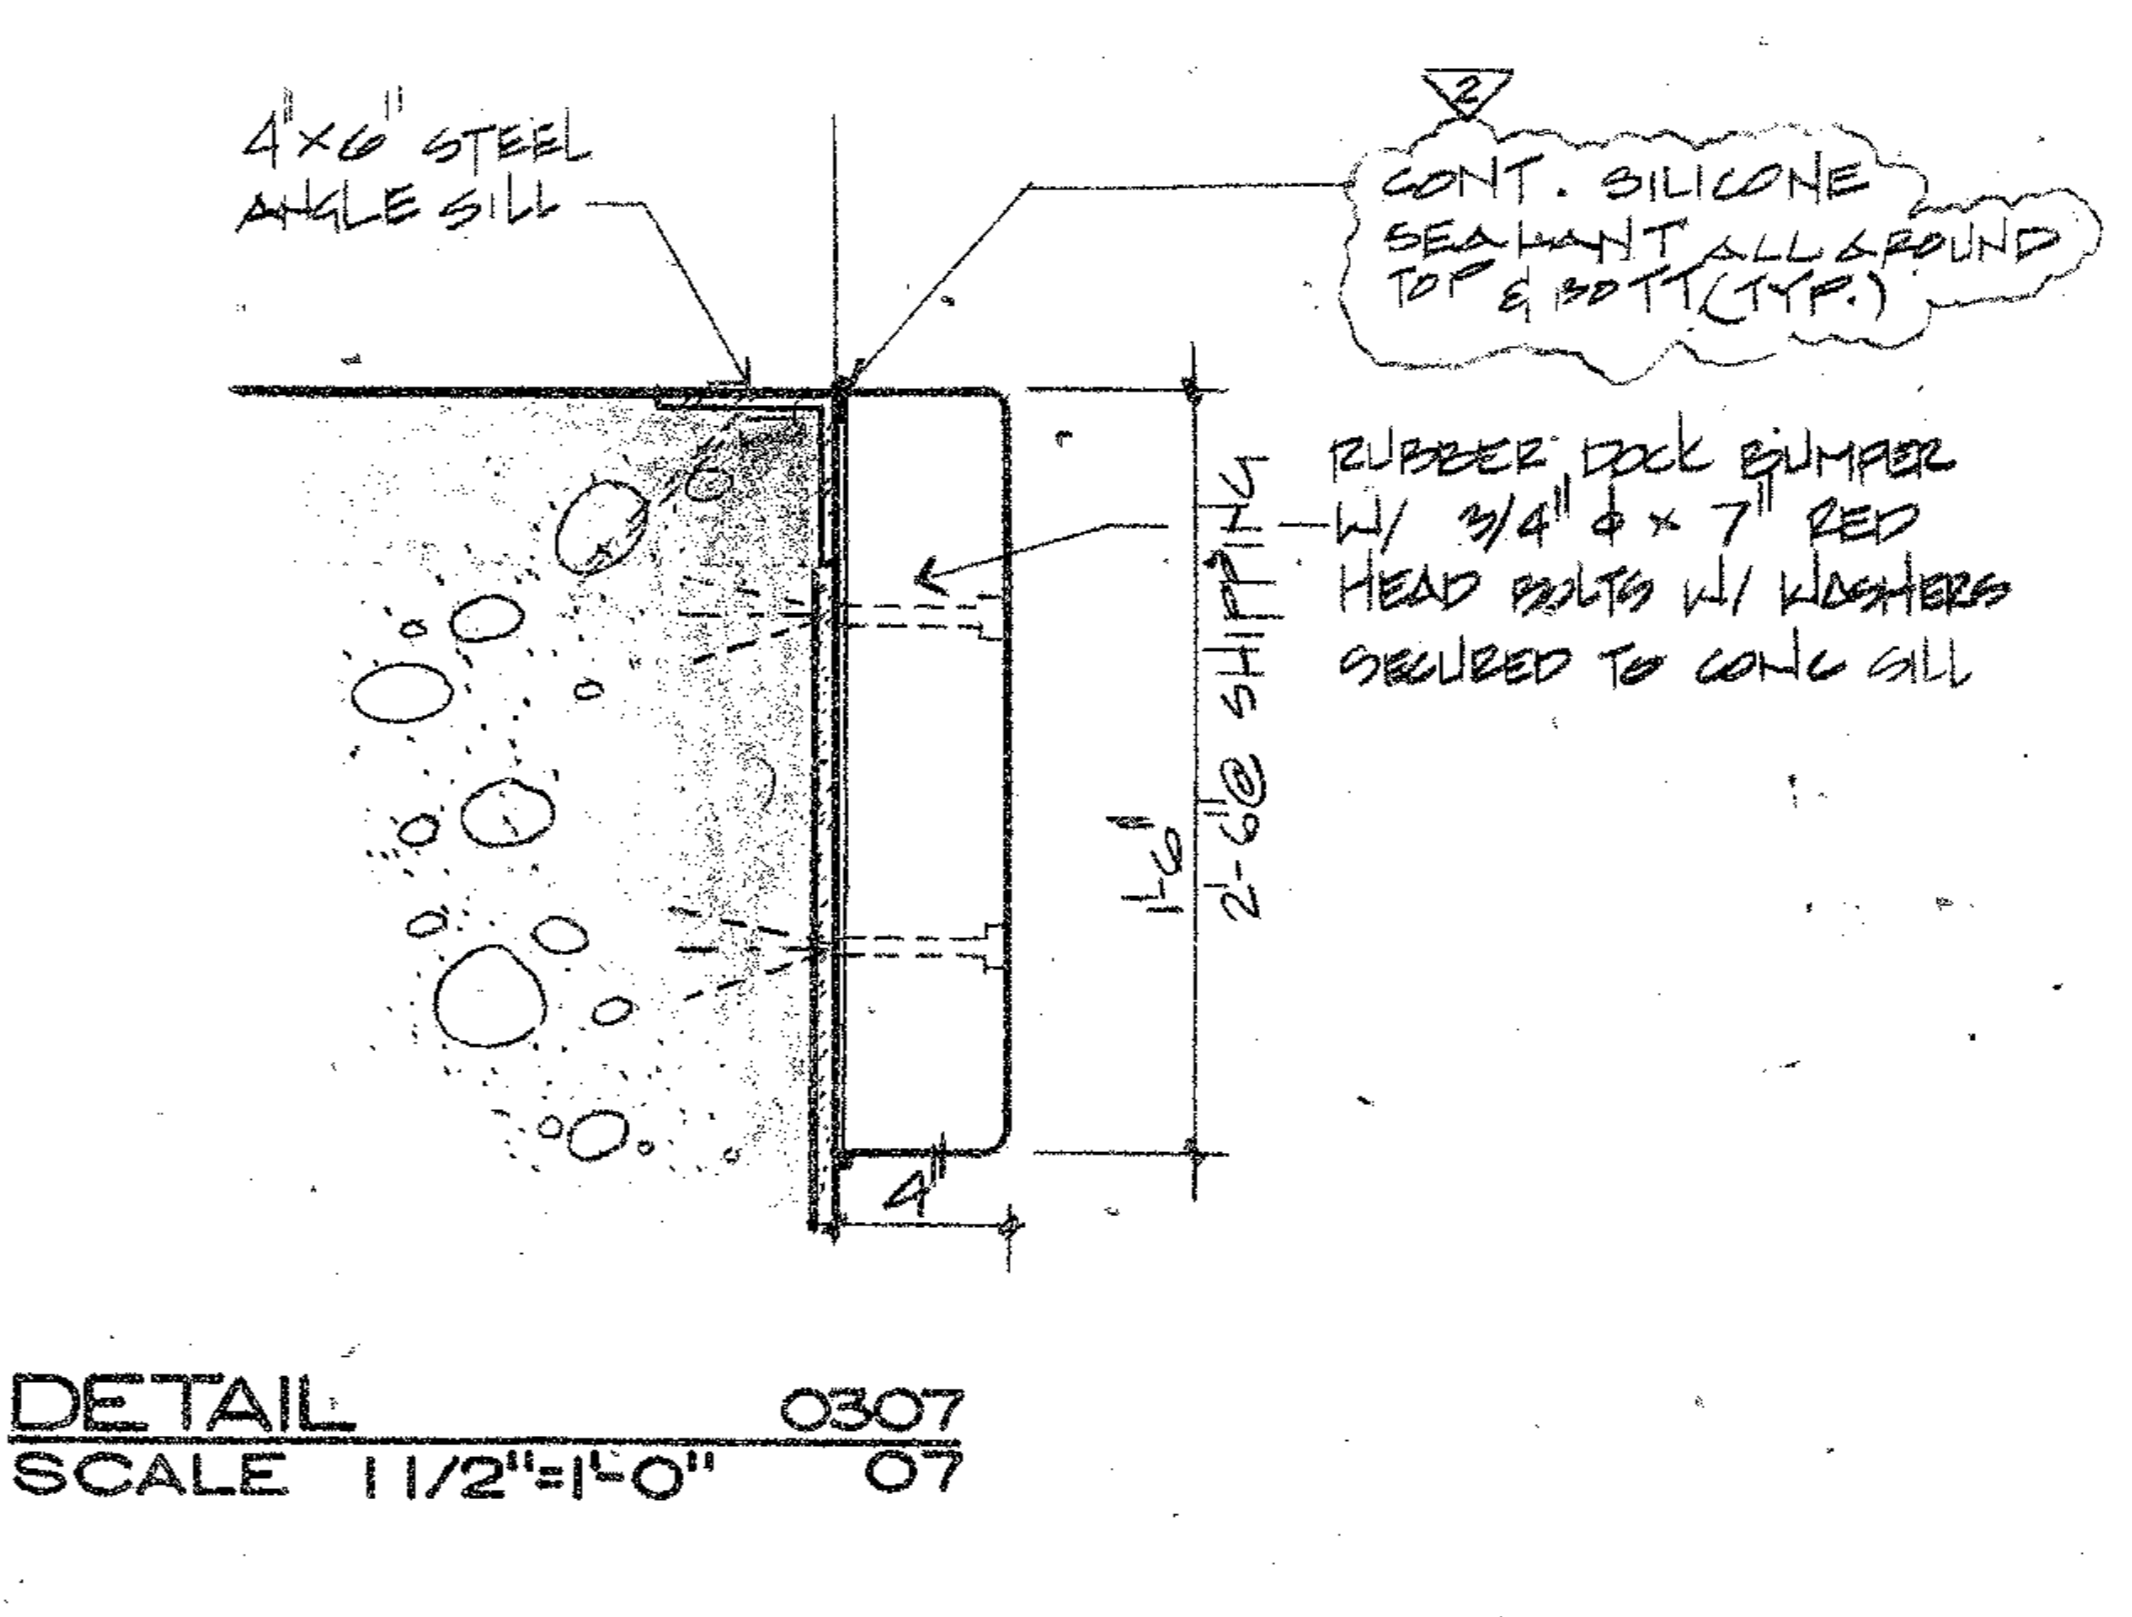 4"x6" STEEL
ANGLE SILL
2
CONT. SILICONE
SEALANT ALL AROUND
TOP & BOTT (TYP.)
RUBBER DOCK BUMPER
W/ 3/4" ϕ x 7" RED
HEAD BOLTS W/ WASHERS
SECURED TO CONC SILL
1'-6"
2'-6" @ SHIPPING
4"
DETAIL 0307
SCALE 1 1/2"=1'-0" 07